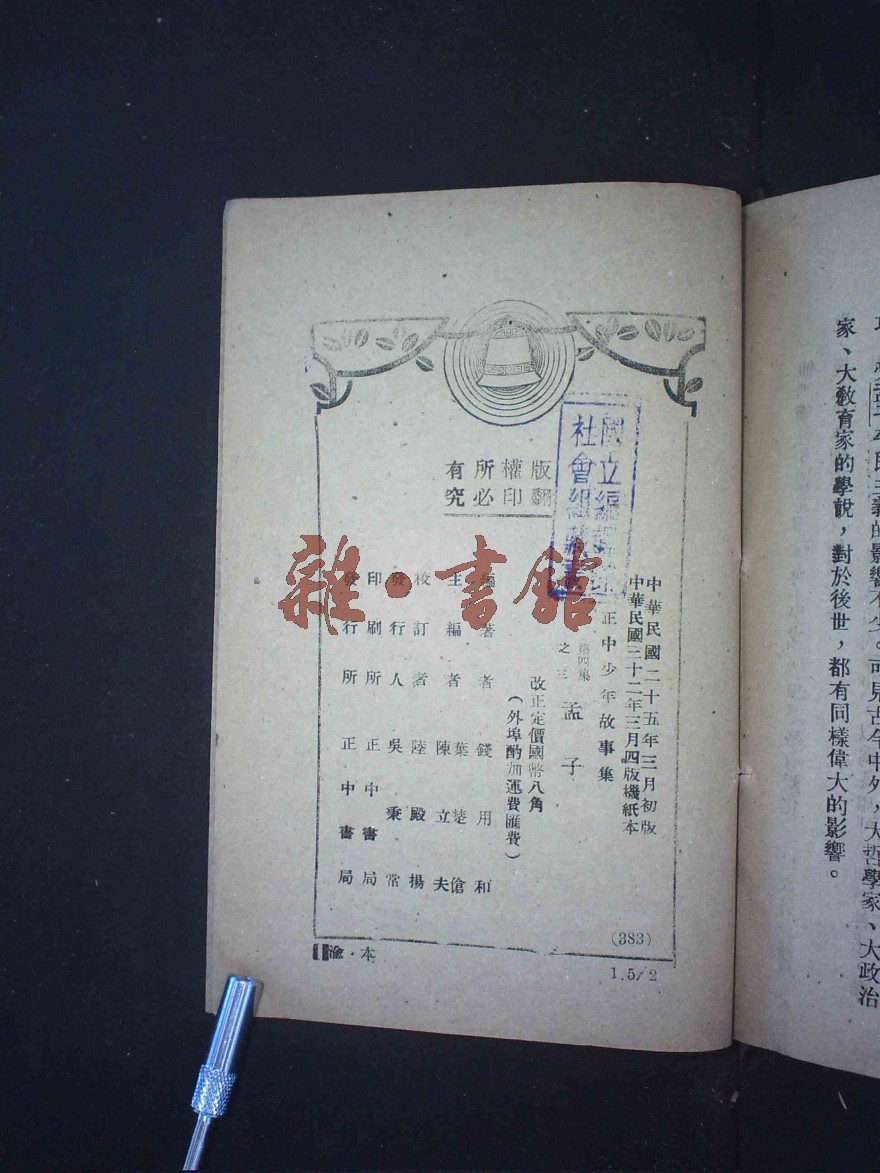 家、大教育家的學說，對於後世，都有同樣偉大的影響。
版權所有
翻印必究
國立編
社會組
中華民國二十五年三月初版
中華民國三十二年三月四版機紙本
正中少年故事集
第四集
之三
孟子
改正定價國幣八角
（外埠酌加運費匯費）
編著者 錢用和
主編者 葉楚傖
陳立夫
校訂者 陸殿揚
發行人 吳秉常
印刷所 正中書局
發行所 正中書局
(383)
渝·本
1.5/2
雜·書館